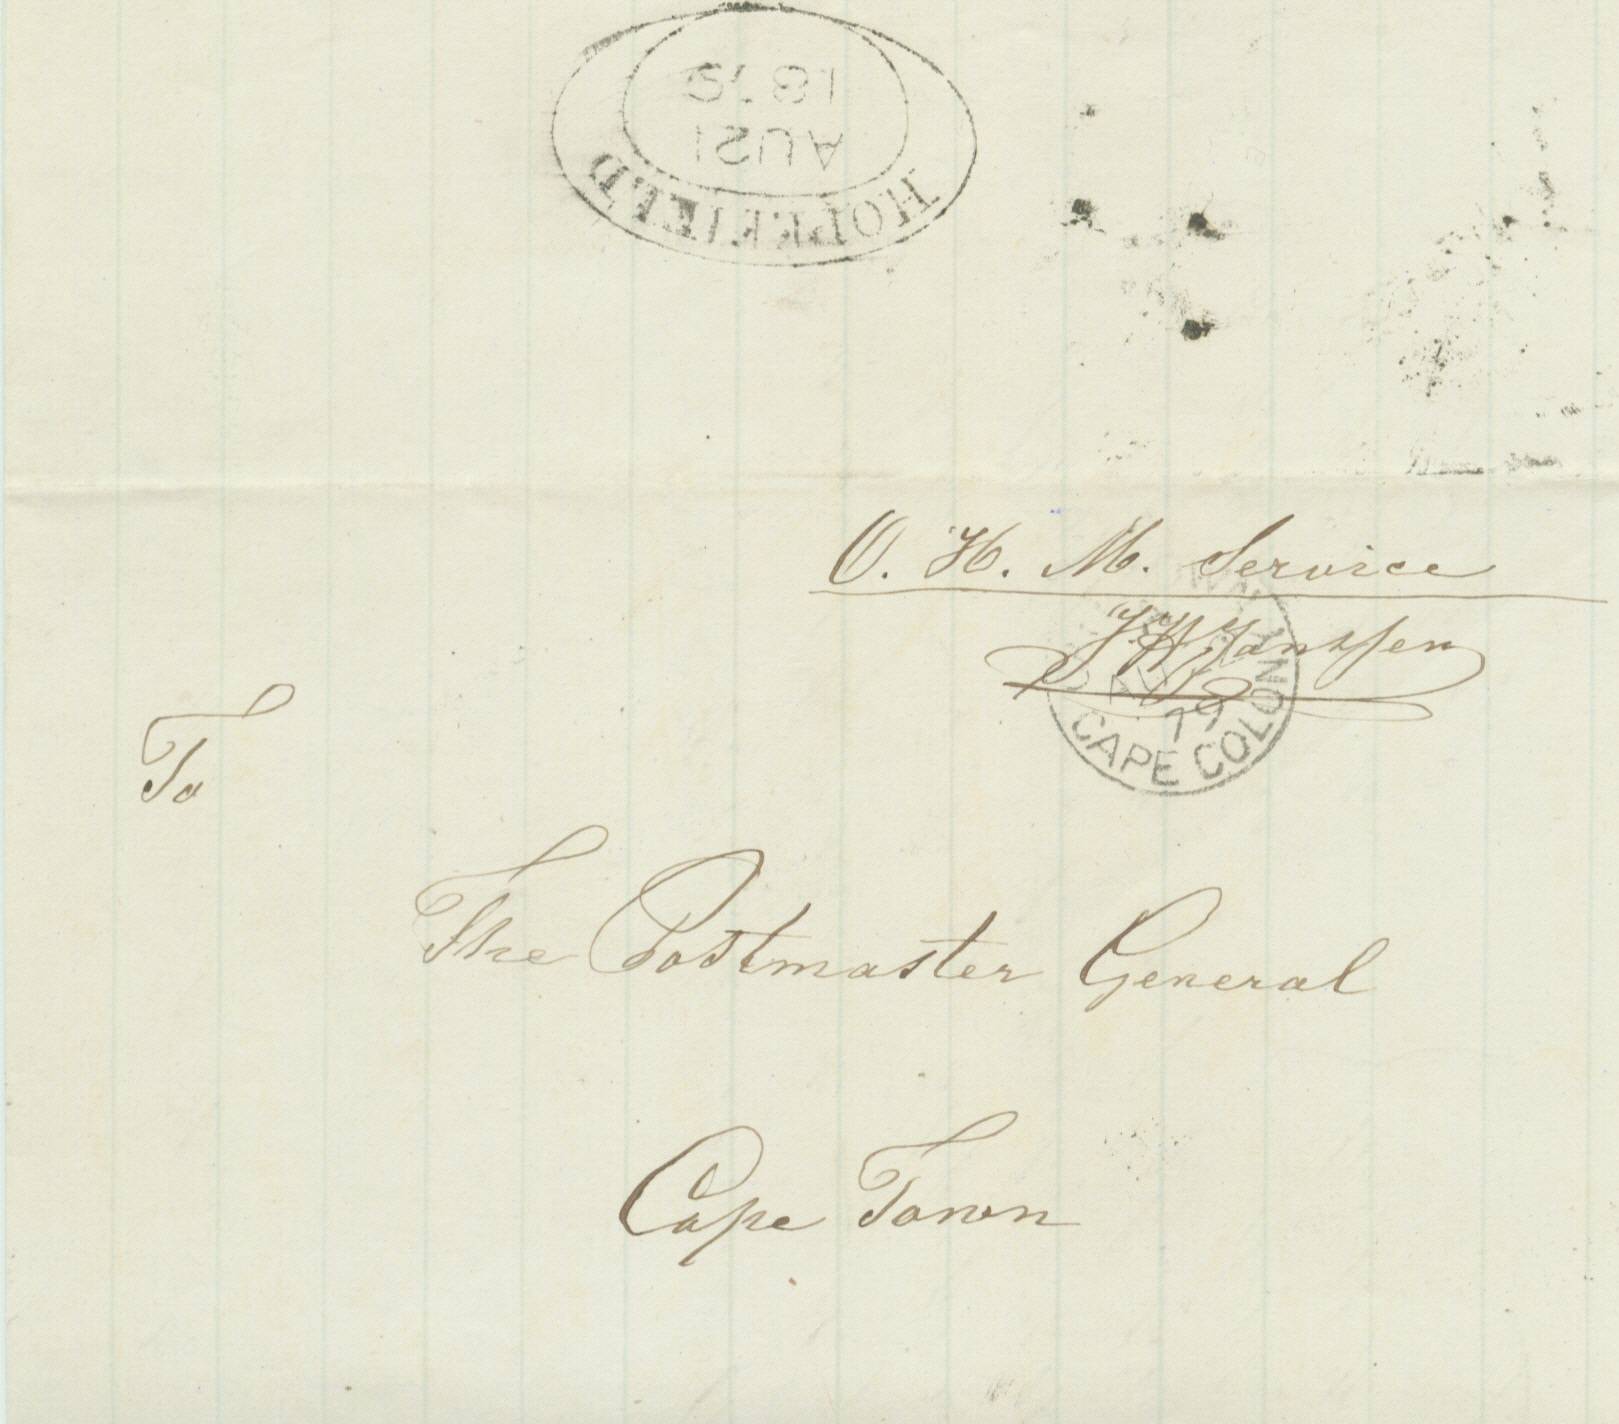 HOPEFIELD
AU 21
O. H. M. Service
J. H. Janssen
AU
79
CAPE COLONY
To
The Postmaster General
Cape Town